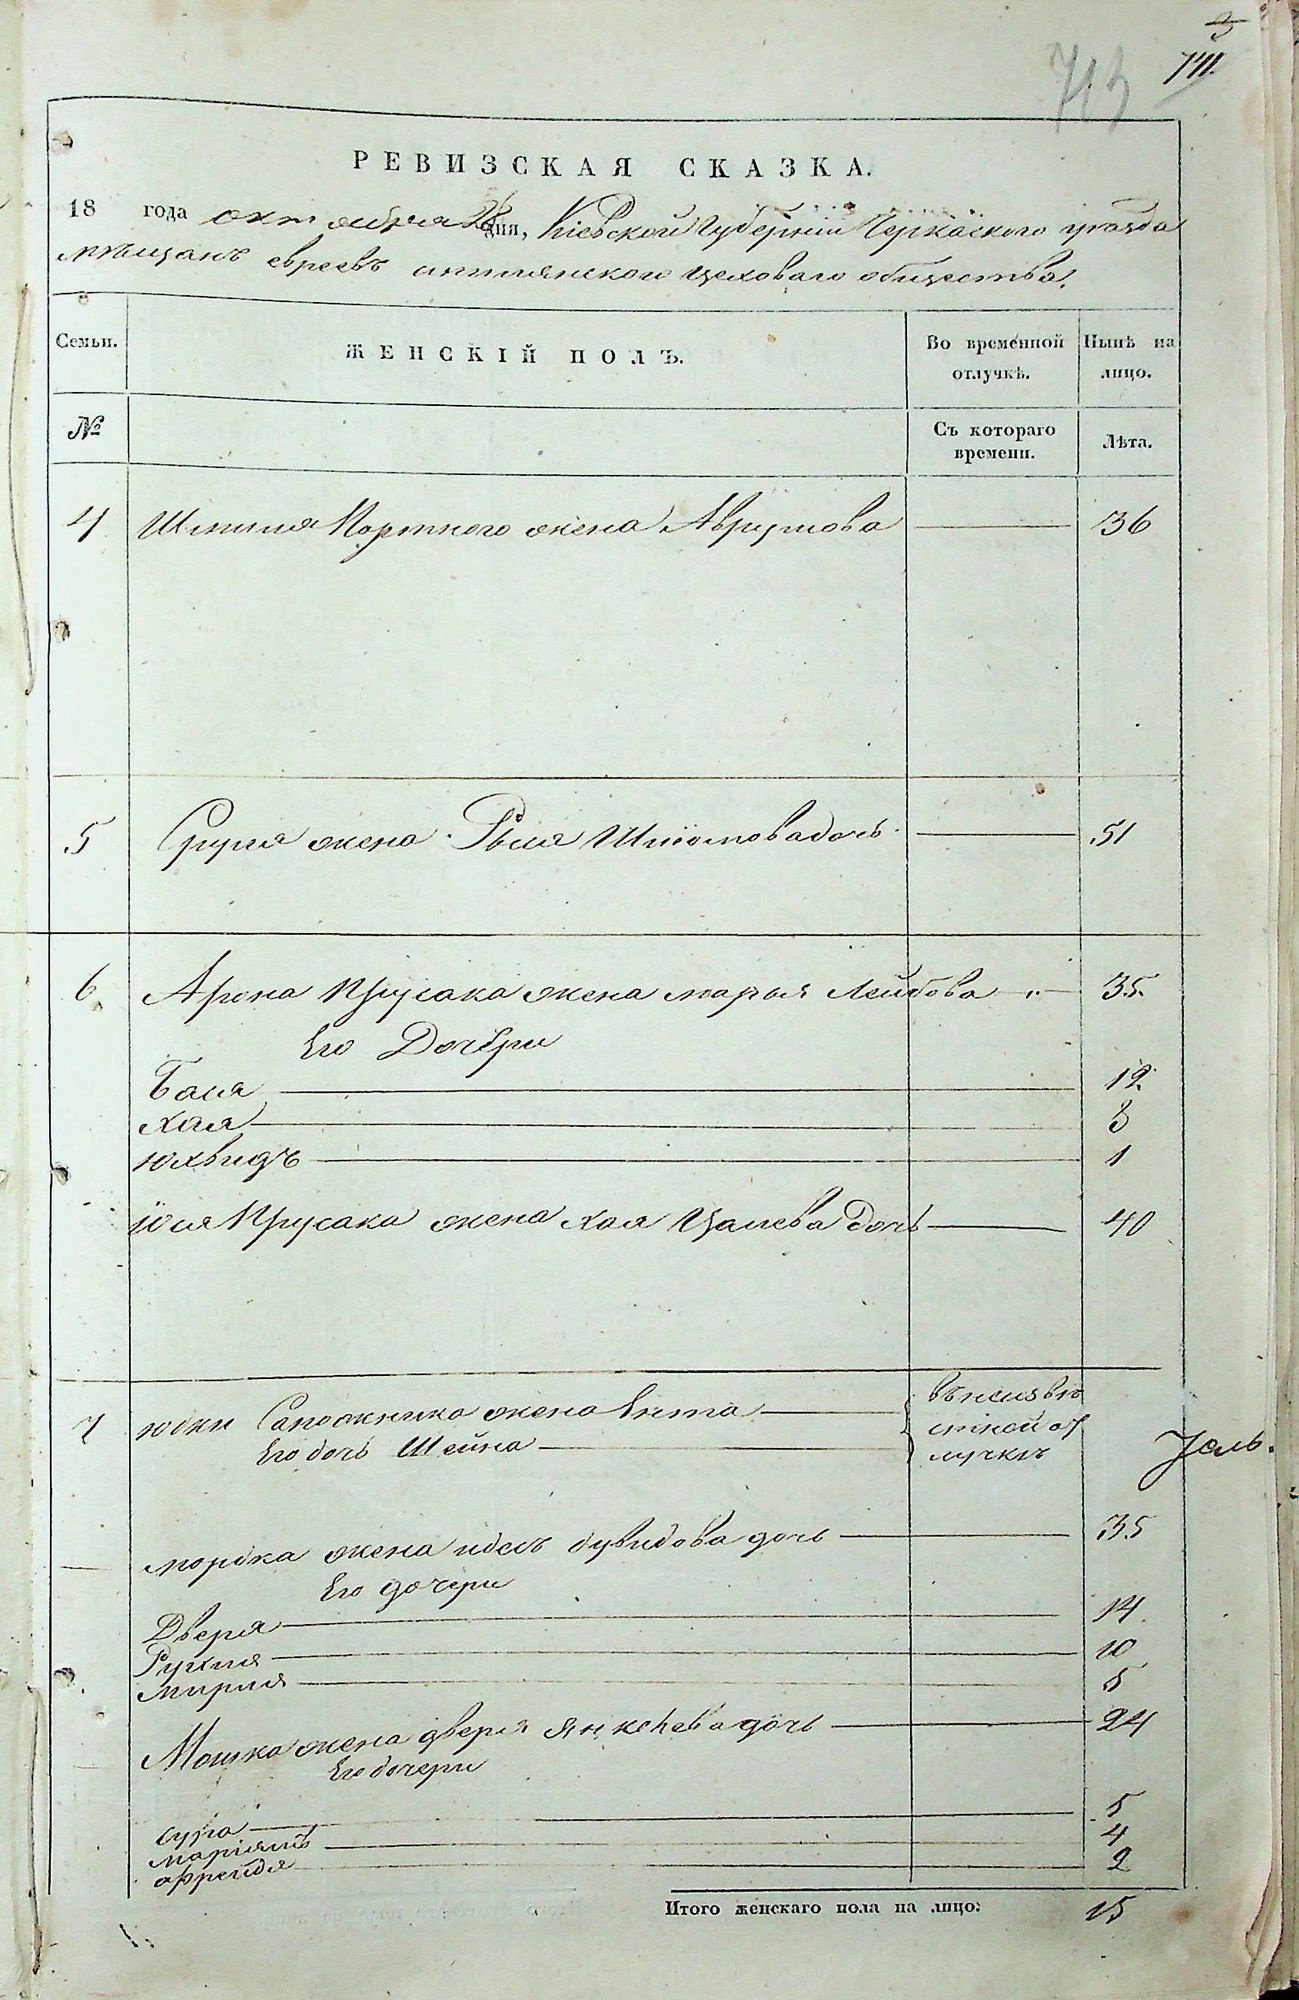 3
711.
713
РЕВИЗСКАЯ СКАЗКА.
18 года октября 28 дня, Кіевской Губерніи Черкаского уезда
мещанъ евреевъ цеховаго общества.
Семьи. ЖЕНСКІЙ ПОЛЪ. Во временной отлучкѣ. Нынѣ на лицо.
№ Съ котораго времени. Лѣта.
4 Шмиля Портного жена Аврумова 36
5 Сруля жена Рыся дочь 51
6 Арона Прусака жена марья Лейбова " 35
Его Дочери
Бася 12
хая 3
юхвидъ 1
Іося Прусака жена хая дочь 40
7 юдки Сапожника жена Ента въ неизвѣ
Его дочь Шейна стной от
лучкѣ
мордка жена идесъ дувидова дочь 35
Его дочери
Двера 14
Рухля 10
мирля 5
Мошка жена двера янкелева дочь 24
Его дочери
сура 5
маріямъ 4
фрейда 2
Итого женскаго пола на лицо: 15